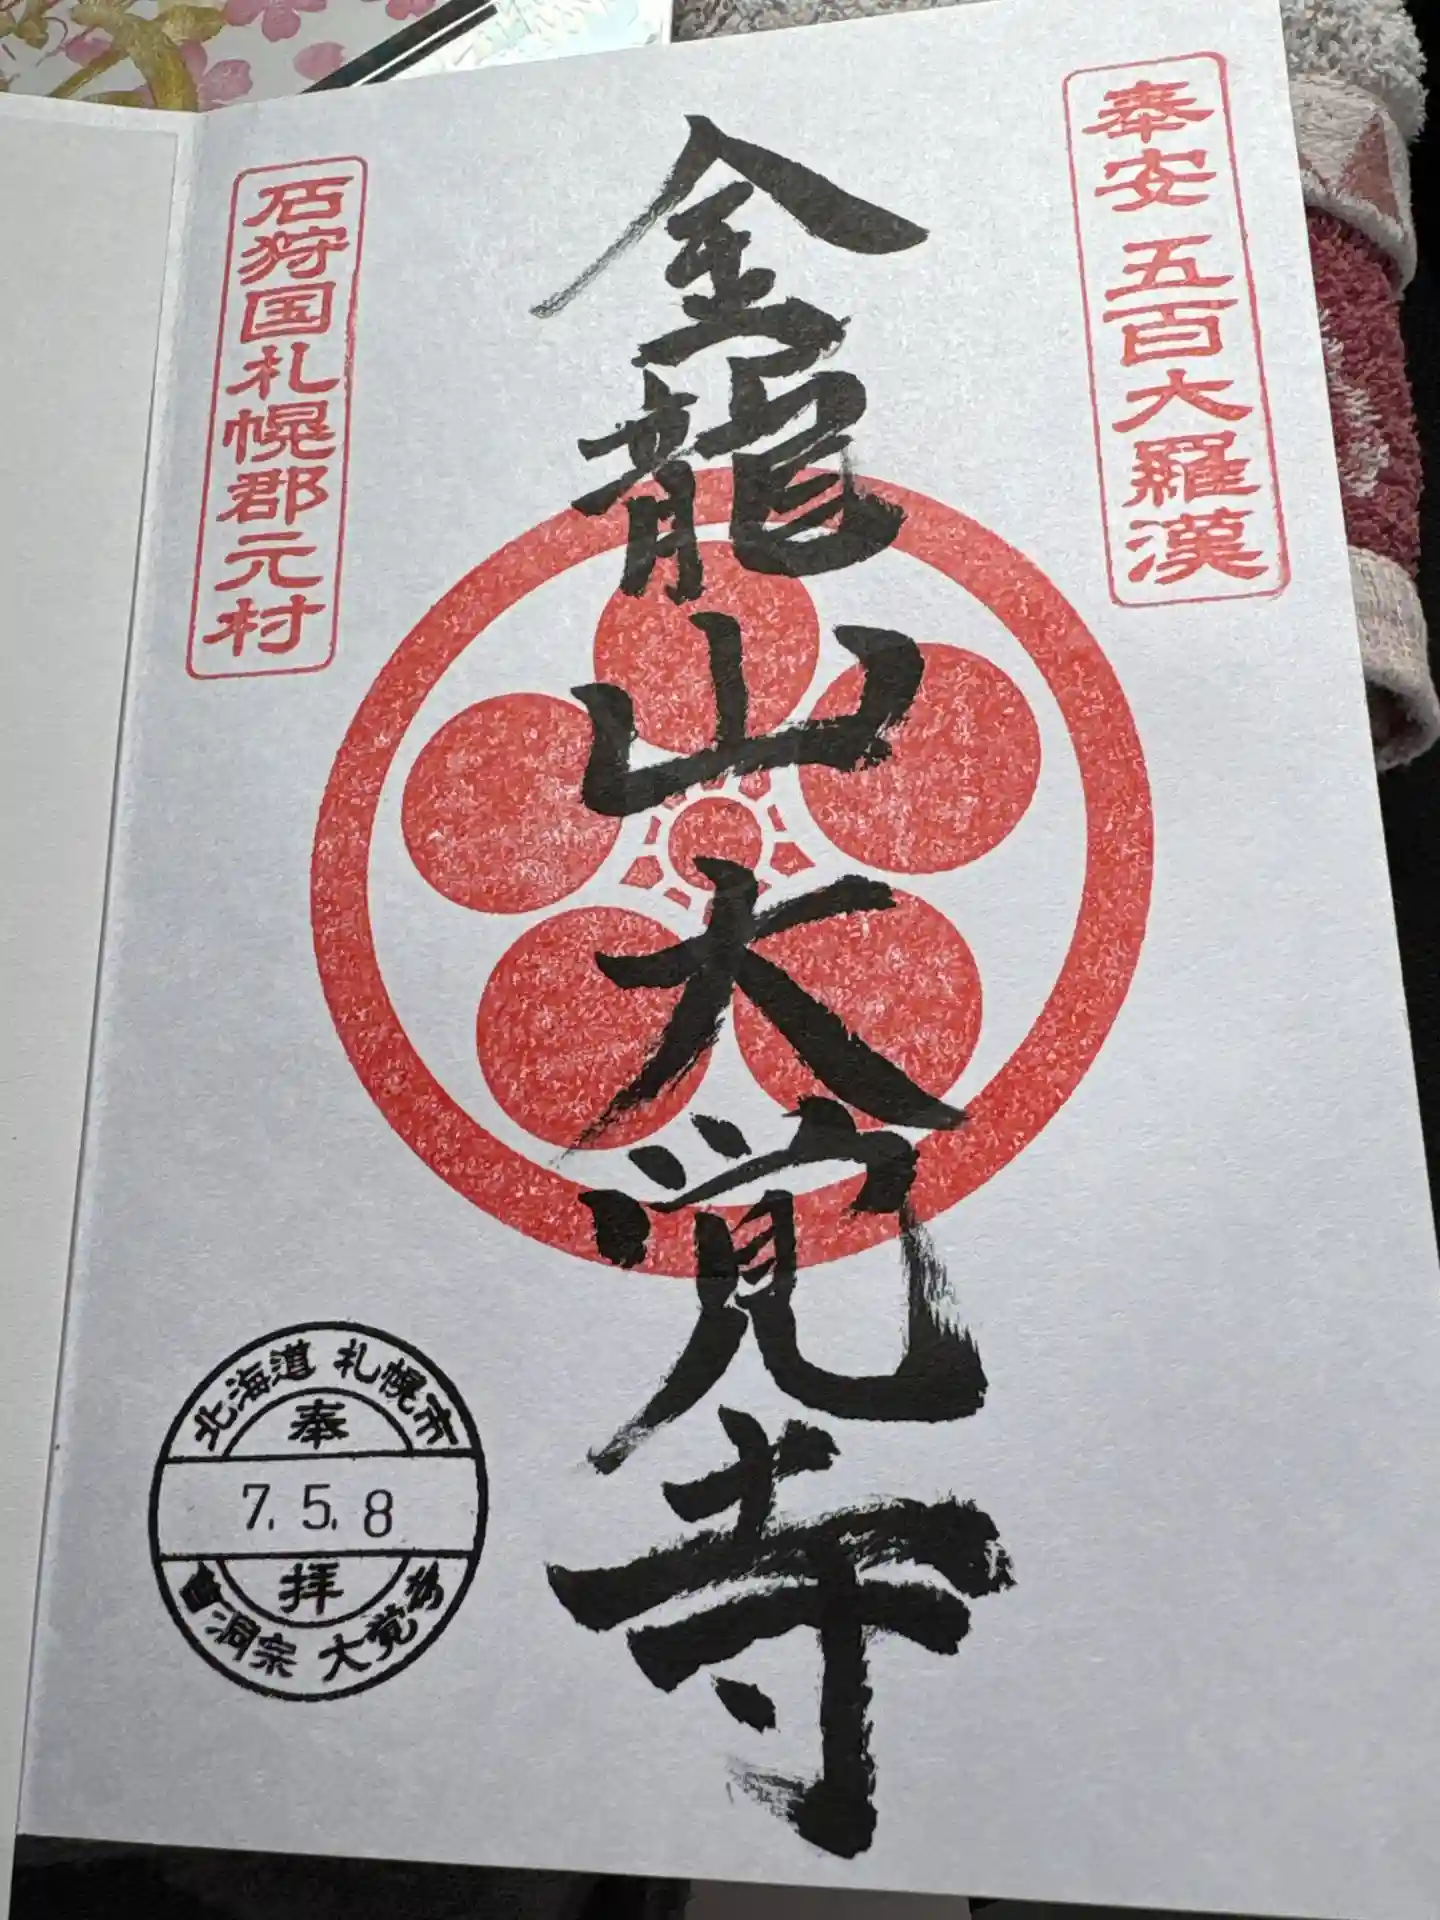 奉安 五百大羅漢
金龍山大覚寺
石狩国札幌郡元村
北海道 札幌市
奉
7.5.8
拝
曹洞宗 大覚寺